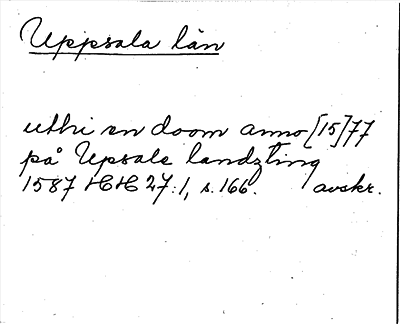 Uppsala län
uthi en doom anno [15]77
på Upsale landzting
1587 HH 27:1, s. 166. avskr.